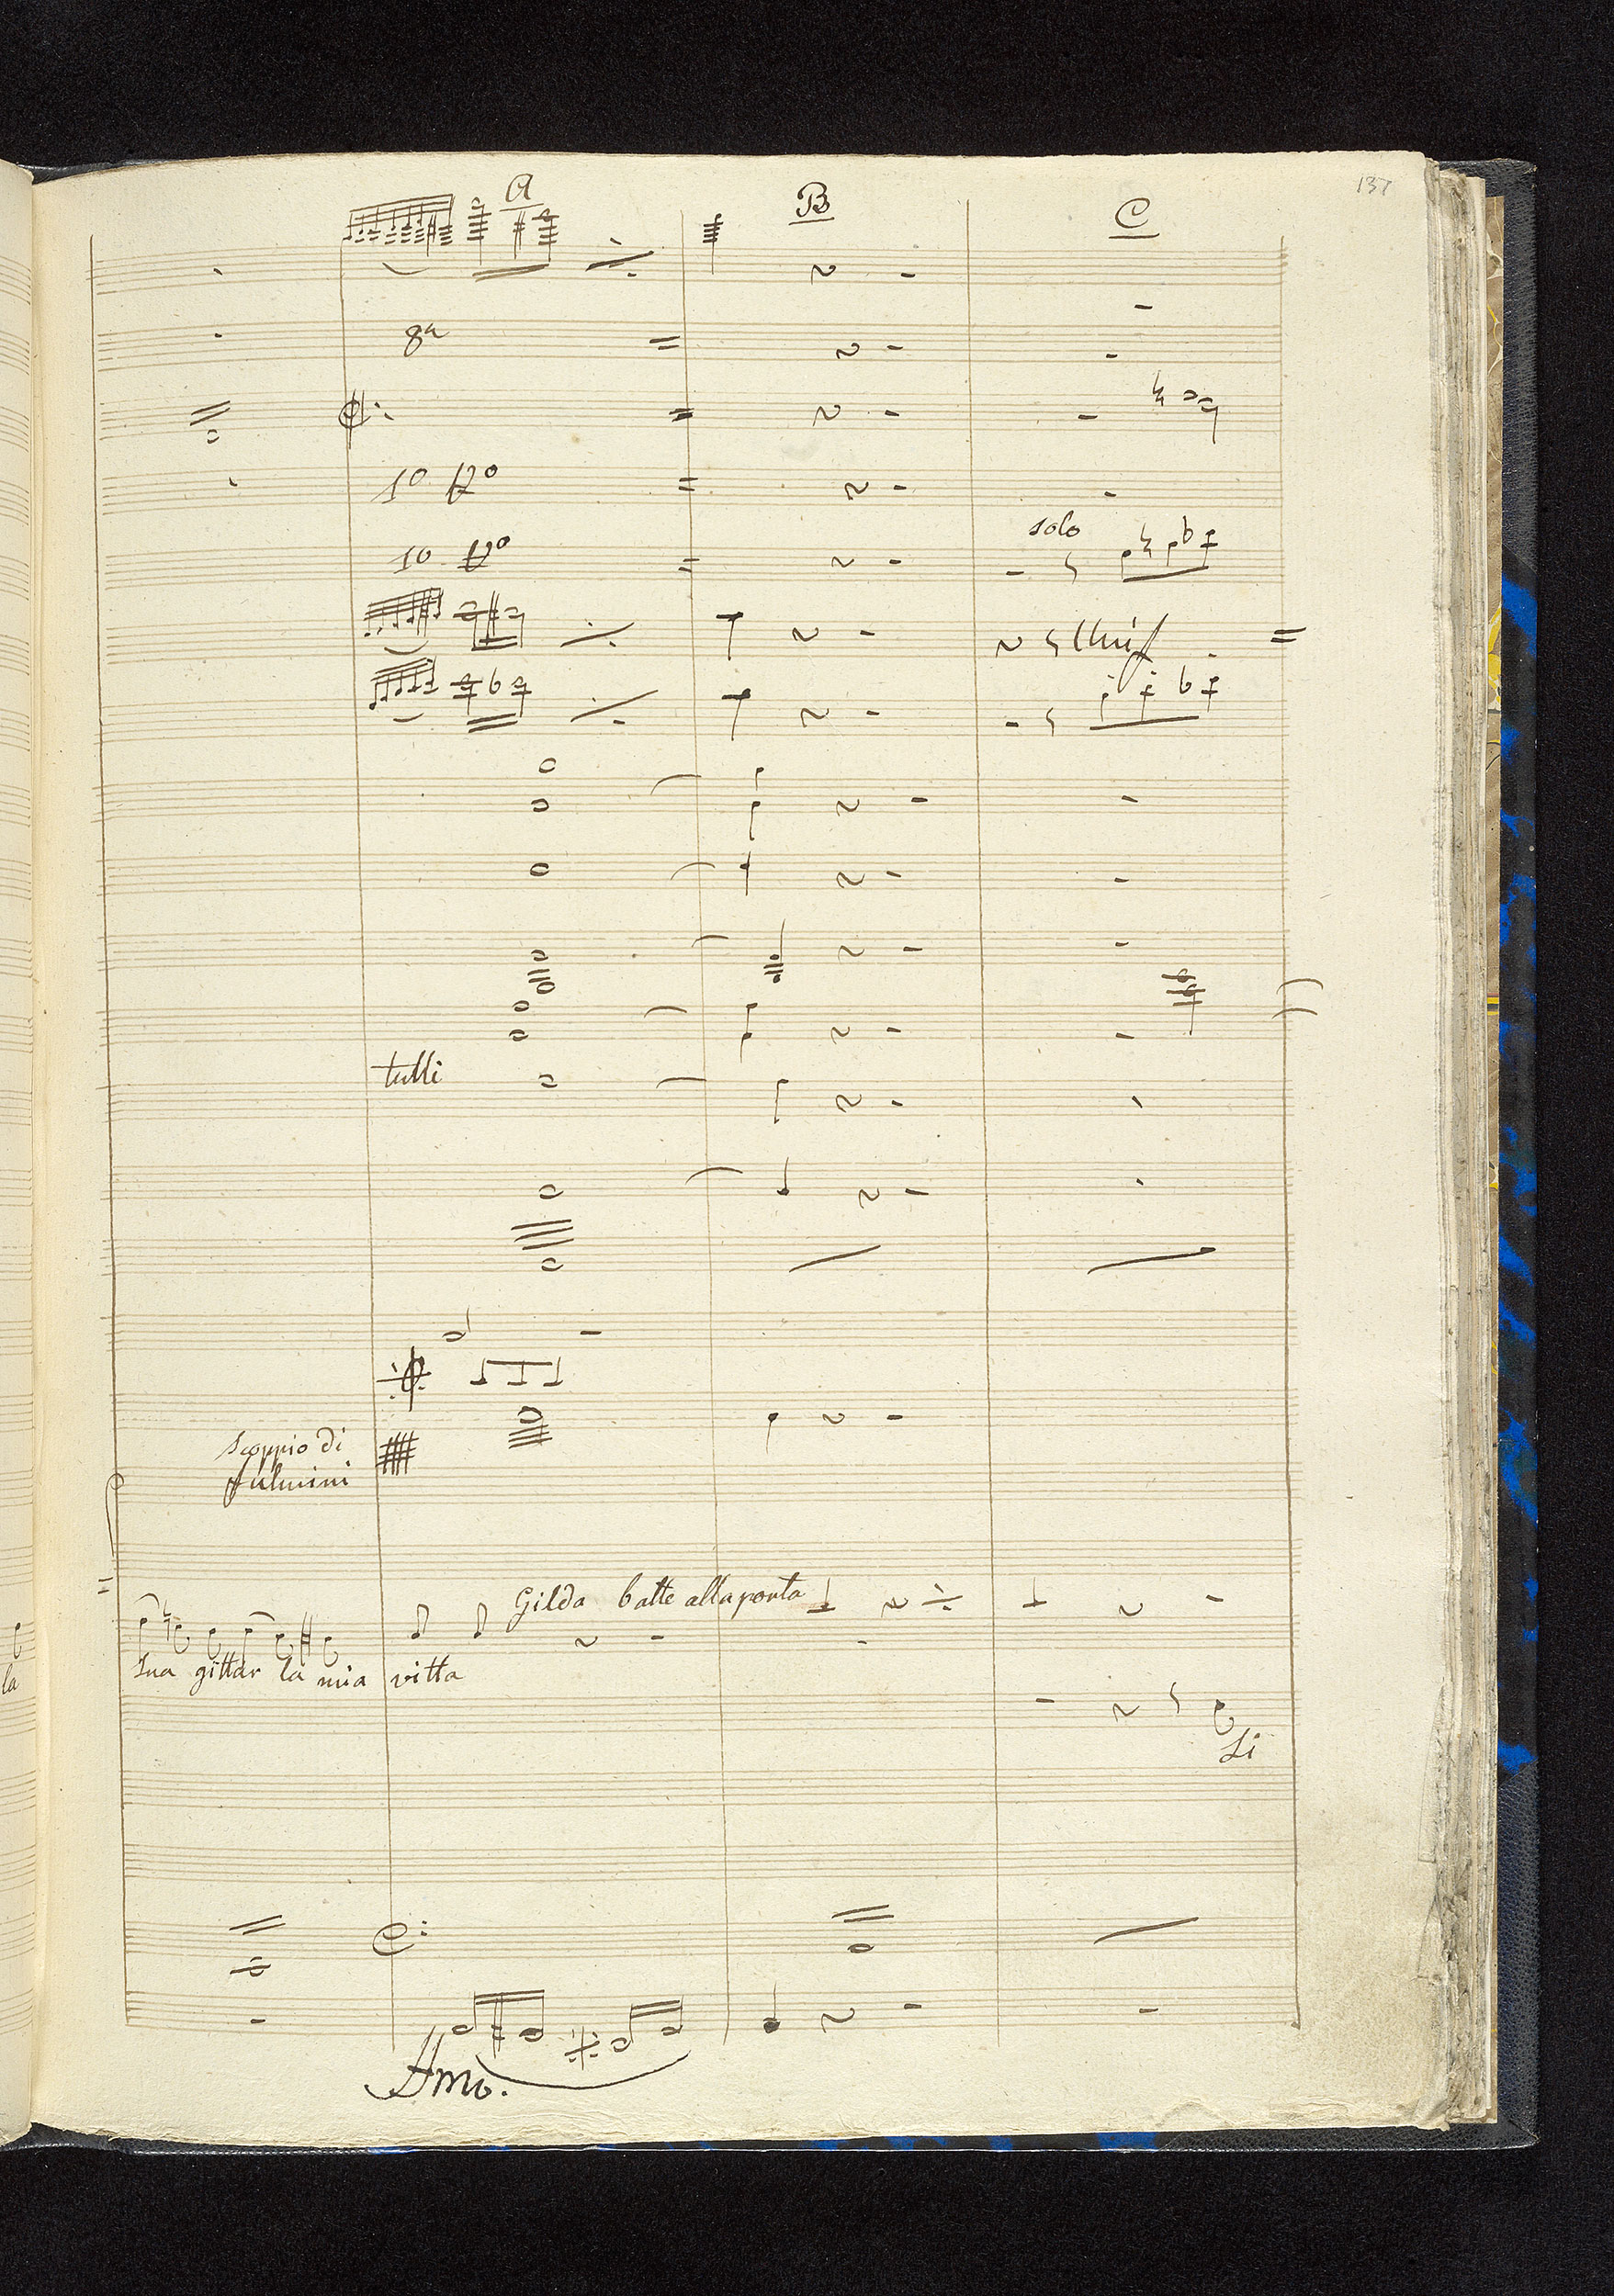 137
A
B
C
8ª
1º Vº
1º Vº
solo
Unis
tutti
Scoppio di
fulmini
Gilda batte alla porta
la
sua gittar la mia vitta
Si